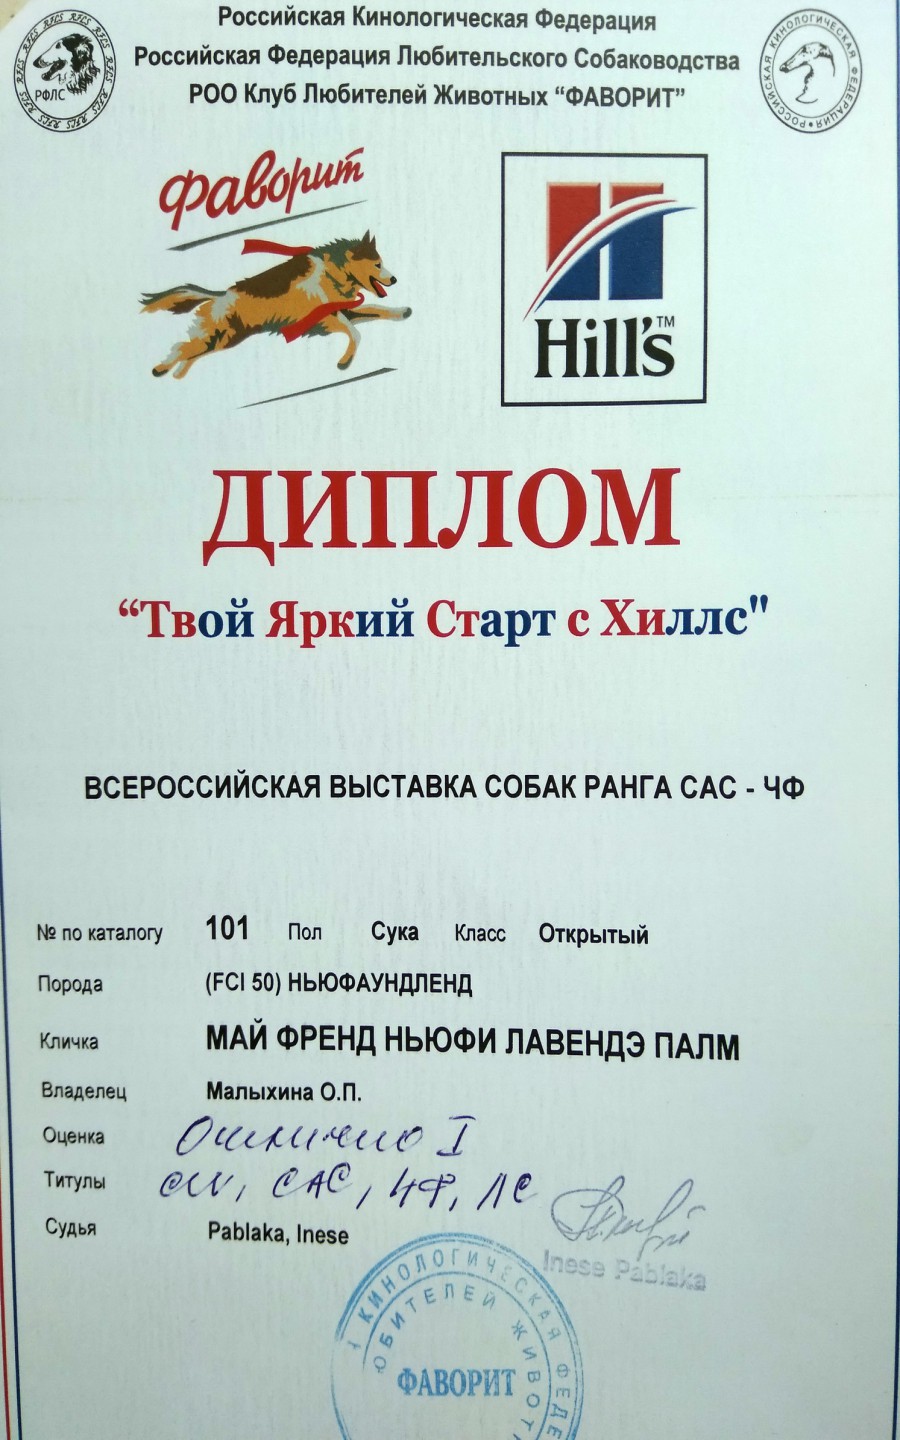 Российская Кинологическая Федерация
Российская Федерация Любительского Собаководства
РОО Клуб Любителей Животных “ФАВОРИТ”
RFCS RFCS RFCS RFCS RFCS RFCS RFCS
РФЛС
РОССИЙСКАЯ КИНОЛОГИЧЕСКАЯ ФЕДЕРАЦИЯ
Фаворит
Hill's™
ДИПЛОМ
“Твой Яркий Старт с Хиллс"
ВСЕРОССИЙСКАЯ ВЫСТАВКА СОБАК РАНГА САС - ЧФ
№ по каталогу 101 Пол Сука Класс Открытый
Порода (FCI 50) НЬЮФАУНДЛЕНД
Кличка МАЙ ФРЕНД НЬЮФИ ЛАВЕНДЭ ПАЛМ
Владелец Малыхина О.П.
Оценка Отлично I
Титулы CW, CAC, ЧФ, ЛС
Судья Pablaka, Inese
Inese Pablaka
КИНОЛОГИЧЕСКАЯ ФЕДЕ
ЮБИТЕЛЕЙ ЖИВОТ
ФАВОРИТ